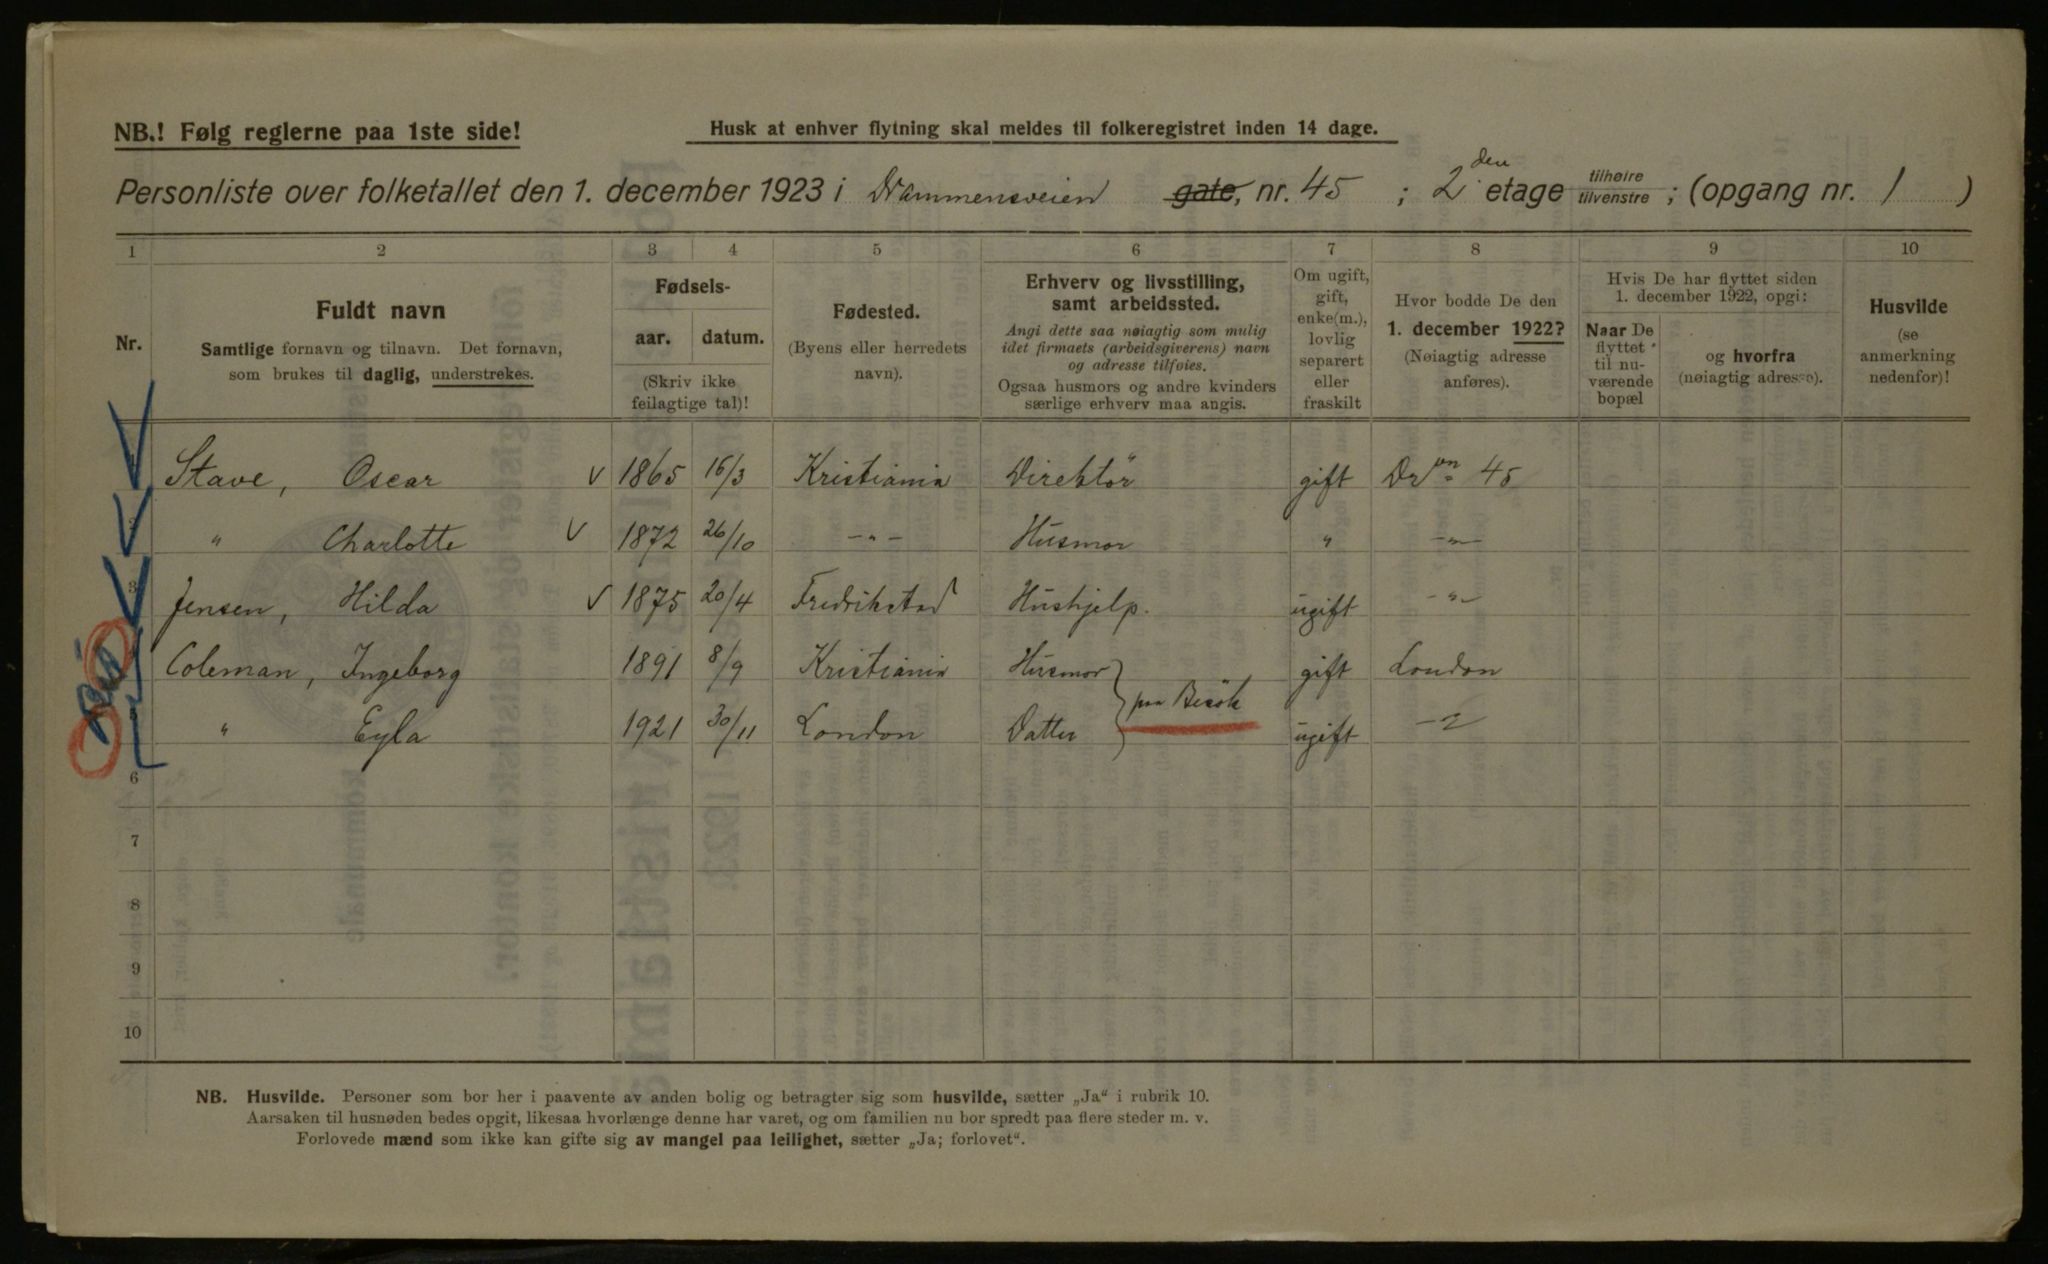 NB.! Følg reglerne paa 1ste side!
Husk at enhver flytning skal meldes til folkeregistret inden 14 dage.
Personliste over folketallet den 1. december 1923 i Drammensveien gate, nr. 45 ; 2den etage tilhøire tilvenstre ; (opgang nr. 1 )
1 2 3 4 5 6 7 8 9 10
Nr.
Fuldt navn
Samtlige fornavn og tilnavn. Det fornavn,
som brukes til daglig, understrekes.
Fødsels-
aar. datum.
(Skriv ikke
feilagtige tal)!
Fødested.
(Byens eller herredets
navn).
Erhverv og livsstilling,
samt arbeidssted.
Angi dette saa nøiagtig som mulig
idet firmaets (arbeidsgiverens) navn
og adresse tilføies.
Ogsaa husmors og andre kvinders
særlige erhverv maa angis.
Om ugift,
gift,
enke(m.),
lovlig
separert
eller
fraskilt
Hvor bodde De den
1. december 1922?
(Nøiagtig adresse
anføres).
Hvis De har flyttet siden
1. december 1922, opgi:
Naar De
flyttet
til nu-
værende
bopæl
og hvorfra
(nøiagtig adresse).
Husvilde
(se
anmerkning
nedenfor)!
Stave, Oscar v 1865 16/3 Kristiania Direktör gift Drvn 45
2 " Charlotte v 1872 26/10 -"- Husmor " -"-
3 Jensen, Hilda v 1875 20/4 Fredrikstad Hushjelp. ugift -"-
Coleman, Ingeborg 1891 8/9 Kristiania Husmor } paa Besök gift London
5 " Eyla 1921 30/11 London Datter ugift -"-
6
7
8
9
10
NB. Husvilde. Personer som bor her i paavente av anden bolig og betragter sig som husvilde, sætter „Ja“ i rubrik 10.
Aarsaken til husnøden bedes opgit, likesaa hvorlænge denne har varet, og om familien nu bor spredt paa flere steder m. v.
Forlovede mænd som ikke kan gifte sig av mangel paa leilighet, sætter „Ja; forlovet“.